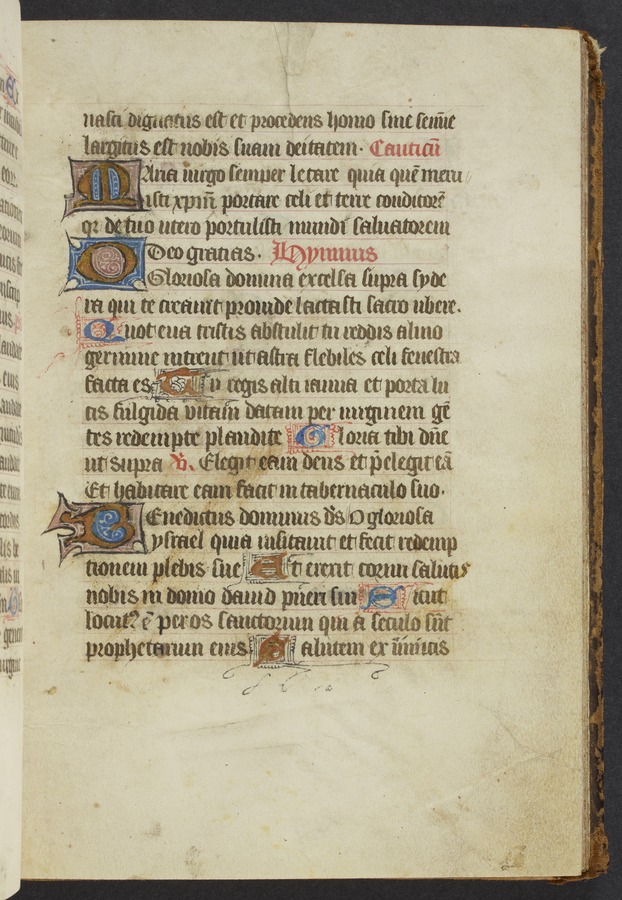 nasci dignatus est et procedens homo sine semīe
largitus est nobis suam deitatem. Canticū
Maria uirgo semper letare quia quē meru
isti xpm̄ portare celi et terre conditorē
qr de tuo utero portulisti mundi saluatorem
Deo gratias. Hymnus
O Gloriosa domina excelsa supra syde
ra qui te creauit prouide lactasti sacro ubere.
Quot eua tristis abstulit tu reddis almo
germine intrent ut astra flebiles celi fenestra
facta es Tu regis alti ianua et porta lu
cis fulgida uitam datam per uirginem gē
tes redempte plaudite Gloria tibi dn̄e
ut supra V. Elegit eam deus et p̄elegit eā
Et habitare eam facit in tabernaculo suo.
Benedictus dominus d̄s O gloriosa
ysrael quia uisitauit et fecit redemp
tionem plebis sue Et erexit cornu salutis
nobis in domo dauid pueri sui Sicut
locut9 ē per os sanctorum qui a seculo sūt
prophetarum eius Salutem ex inimicis